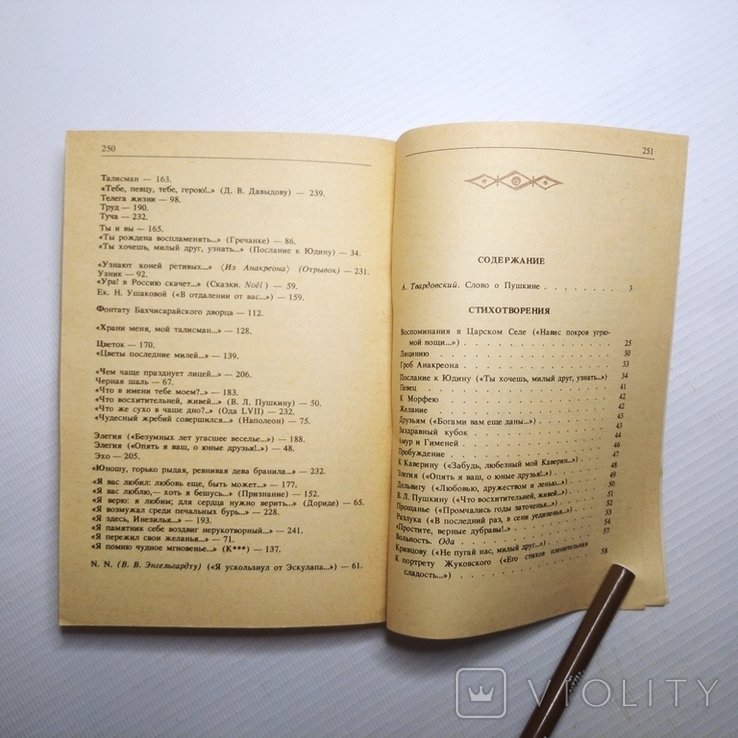 250
Талисман — 163.
«Тебе, певцу, тебе, герою!..» (Д. В. Давыдову) — 239.
Телега жизни — 98.
Труд — 190.
Туча — 232.
Ты и вы — 165.
«Ты рождена воспламенять...» (Гречанке) — 86.
«Ты хочешь, милый друг, узнать...» (Послание к Юдину) — 34.
«Узнают коней ретивых...» (Из Анакреона) (Отрывок) — 231.
Узник — 92.
«Ура! в Россию скачет...» (Сказки. Noël) — 59.
Ек. Н. Ушаковой («В отдалении от вас...») — 159.
Фонтану Бахчисарайского дворца — 112.
«Храни меня, мой талисман...» — 128.
Цветок — 170.
«Цветы последние милей...» — 139.
«Чем чаще празднует лицей...» — 206.
Черная шаль — 67.
«Что в имени тебе моем?..» — 183.
«Что восхитительней, живей...» (В. Л. Пушкину) — 50.
«Что же сухо в чаше дно?..» (Ода LVII) — 232.
«Чудесный жребий совершился...» (Наполеон) — 75.
Элегия («Безумных лет угасшее веселье...») — 188.
Элегия («Опять я ваш, о юные друзья!») — 48.
Эхо — 205.
«Юношу, горько рыдая, ревнивая дева бранила...» — 232.
«Я вас любил: любовь еще, быть может...» — 177.
«Я вас люблю, — хоть я бешусь...» (Признание) — 152.
«Я верю: я любим; для сердца нужно верить...» (Дориде) — 65.
«Я возмужал среди печальных бурь...» — 228.
«Я здесь, Инезилья...» — 193.
«Я памятник себе воздвиг нерукотворный...» — 241.
«Я пережил свои желанья...» — 71.
«Я помню чудное мгновенье...» (К***) — 137.
N. N. (В. В. Энгельгардту) («Я ускользнул от Эскулапа...») — 61.
251
СОДЕРЖАНИЕ
А. Твардовский. Слово о Пушкине . . . . . . . . 3
СТИХОТВОРЕНИЯ
Воспоминания в Царском Селе («Навис покров угрю-
мой нощи...») . . . . . . . . 25
Лицинию . . . . . . . . 30
Гроб Анакреона . . . . . . . . 33
Послание к Юдину («Ты хочешь, милый друг, узнать...») 34
Певец . . . . . . . . 41
К Морфею . . . . . . . . 42
Желание . . . . . . . . 42
Друзьям («Богами вам еще даны...») . . . . . . 43
Заздравный кубок . . . . . . . . 43
Амур и Гименей . . . . . . . . 44
Пробуждение . . . . . . . . 46
К Каверину («Забудь, любезный мой Каверин...») . . 47
Элегия («Опять я ваш, о юные друзья!») . . . . 48
Дельвигу («Любовью, дружеством и ленью...») . . . 49
В. Л. Пушкину («Что восхитительней, живей...») . . 50
Прощанье («Промчались годы заточенья...») . . . 51
Разлука («В последний раз, в сени уединенья...») . . 53
«Простите, верные дубравы!..» . . . . . . 54
Вольность. Ода . . . . . . . . 54
Кривцову («Не пугай нас, милый друг...») . . . . 57
К портрету Жуковского («Его стихов пленительная
сладость...») . . . . . . . . 58
VIOLITY